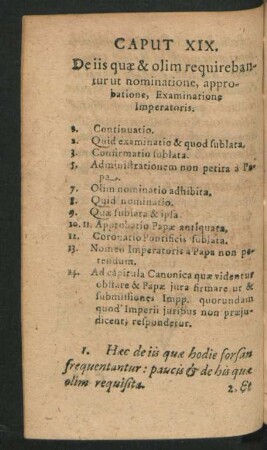 CAPUT XIX.
De iis quæ & olim requireban-
tur ut nominatione, appro-
batione, Examinatione
Imperatoris.
1. Continuatio.
2. Quid examinatio & quod sublata.
3. Confirmatio sublata.
5. Administrationem non petita à Pa-
pa.
7. Olim nominatio adhibita.
8. Quid nominatio.
9. Quæ sublata & ipsa
10. 11. Approbatio Papæ antiquata.
12. Coronatio Pontificis sublata.
13. Nomen Imperatoris a Papa non pe-
tendum.
14. Ad capitula Canonica quæ videntur
obstare & Papæ jura firmare ut &
submissiones Impp. quorundam
quod Imperii juribus non præju-
dicent, respondetur.
1. Hæc de iis quæ hodie forsan
frequentantur: paucis & de his quæ
olim requisita.
2. Et